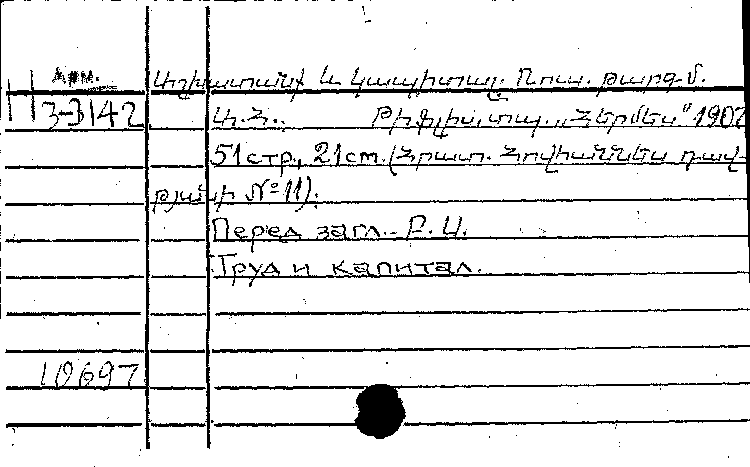 Арм. Աշխատանք և կապիտալ. Ռուս. թարգմ.
3-3142 Ա. Հ.. Թիֆլիս, տպ. „Հերմես" 1907
51 стр., 21 см. (Հրատ. Հովհաննես դավ-
թյանի № 11).
Перед загл.- Բ. Ա.
Труд и капитал.
10697